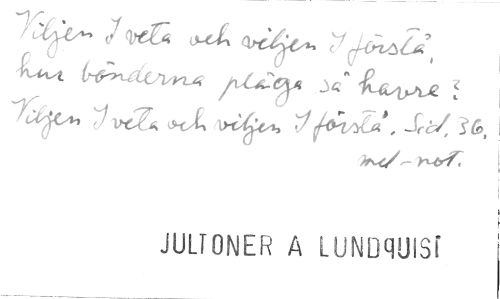 Viljen I veta och viljen I förstå,
hur bönderna pläga så havre?
Viljen I veta och viljen I förstå. Sid. 36.
mel-not.
JULTONER A LUNDQUIST